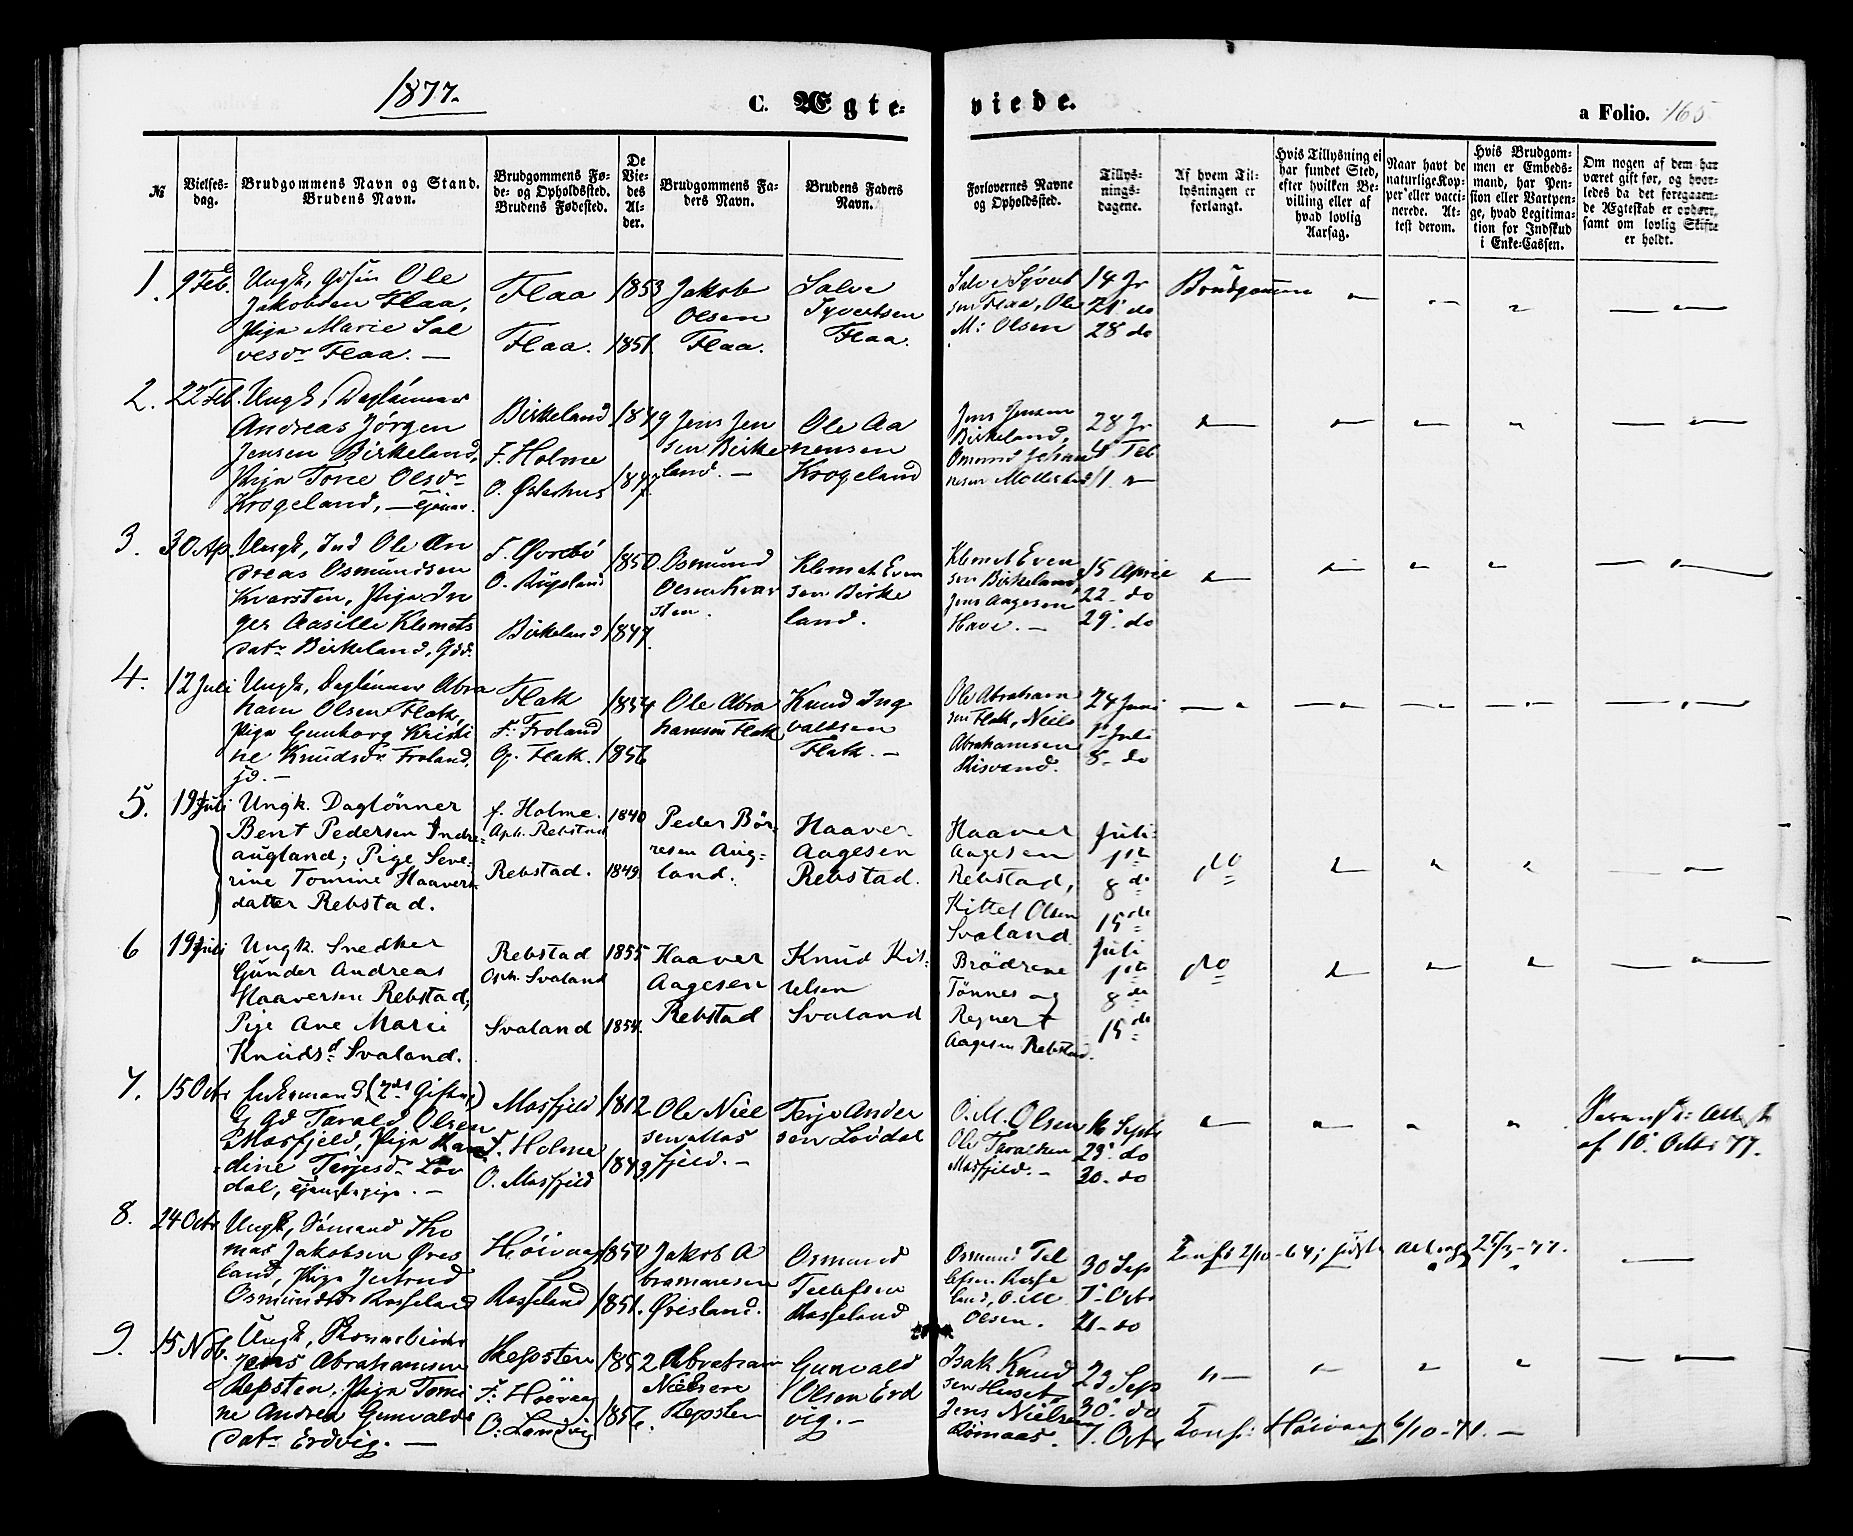 1877.
C. Ægte-
viede.
a Folio. 165
№
Vielses-
dag.
Brudgommens Navn og Stand.
Brudens Navn.
Brudgommens Fø-
de- og Opholdssted.
Brudens Fødested.
De
Vie-
des
Al-
der.
Brudgommens Fa-
ders Navn.
Brudens Faders
Navn.
Forlovernes Navne
og Opholdssted.
Tillys-
nings-
dagene.
Af hvem Til-
lysningen er
forlangt.
Hvis Tillysning ei
har fundet Sted,
efter hvilken Be-
villing eller af
hvad lovlig
Aarsag.
Naar havt de
naturlige Kop-
per eller vacci-
nerede. At-
test derom.
Hvis Brudgom-
men er Embeds-
mand, har Pen-
sion eller Vartpen-
ge, hvad Legitima-
tion for Indskud
i Enke-Cassen.
Om nogen af dem har
været gift før, og hvor-
ledes da det foregaaen-
de Ægteskab er ophørt,
samt om lovlig Skifte
er holdt.
1. 9 Feb.
Ungk, Ole
Jakobsen Flaa,
Pige Marie Sal
vesdr Flaa. —
Flaa
Flaa.
1853
1851.
Jakob
Olsen
Flaa.
Salve
Syvertsen
Flaa.
Salve Syvert
sen Flaa, Ole
M: Olsen
14 Jr
21 do
28 do
Brudgommen
2. 22 Feb.
Ungk, Daglönner
Andreas Jörgen
Jensen Birkeland,
Pige Tone Olsdr
Krogeland, —
Birkeland
F. Holme
O. Østerhus
1849
1847.
Jens Jen
sen Birke
land. —
Ole Aa
nensen
Krogeland
Jens Jensen
Birkeland,
Omund
28 Jr
4 Feb
11 "
3. 30 Ap.
Ungk, Ind Ole An
dreas Osmundsen
Kvarsten, Pige In
ger Aasille Klemets
datr Birkeland, Gdd.
F. Øvrebö
O. Rugsland
Birkeland
1850
1847.
Osmund
Olsen Kvar
sten.
Klemet Even
sen Birke
land.
Klemet Even
sen Birkeland
Jens Aagesen
Have. —
15 April
22 - do
29 - do
4. 12 Juli
Ungk, Daglönner Abra
ham Olsen Flak,
Pige Gunborg Kristi
ne Knudsdr Froland.
Flak
F. Froland
Op. Flak.
1854
1856
Ole Abra
hamsen Flak
Knud Ing
valdsen
Flak. —
Ole Abraham
sen Flak, Niels
Abrahamsen
Risvand.
24 Juni
1 - Juli
8 - do
5. 19 Juli
Ungk. Daglönner
Bent Pedersen Indre-
augland; Pige Seve-
rine Tomine Haavers-
datter Rebstad.
f. Holme.
Oph. Rebstad
Rebstad.
1840
1849
Peder Bör-
resen Aug-
land.
Haaver
Aagesen
Rebstad.
Haaver
Aagesen
Rebstad,
Kittel Olsen
Svaland
Juli
1ste
8de
15de
do
6 19 Juli
Ungk. Snedker
Gunder Andreas
Haaversen Rebstad,
Pige Ane Marie
Knudsd. Svaland.
Rebstad
Oph. Svaland
Svaland
1855
1854.
Haaver
Aagesen
Rebstad
Knud Kit-
telsen
Svaland
Brödrene
Tønnes og
Regnert
Aagesen Rebstad.
Juli
1ste
8de
15de
do
7. 15 Octr
Enkemand (2de Giftm.)
Gd Tarald Olsen
Masfjeld, Pige
dine Terjesdr Löv
dal,
Masfjeld
F. Holme
O. Masfjeld
1812
1843
Ole Niel
sen Mas
fjeld. —
Terje Ander
sen Lövdal
O. M. Olsen
Ole Taraldsen
Masfjeld. —
16 Septr
23 do
30 - do
af 10 Octbr 77.
8. 24 Octr
Ungk, Sömand Tho
mas Jakobsen Øres
land, Pige Jertrud
Osmundsdr Rosseland
Höivaag
Rosseland
1850
1851.
Jakob A
bramansen
Øresland.
Osmund
Tellefsen
Rosseland
Osmund Tel
lefsen Rosse
land, O. M.
Olsen.
30 Sep
7 - Octr
21 - do
Konfs 2/10 - 64;
25/3 - 77.
9. 15 Nob.
Ungk,
Jens Abrahamsen
Repsten, Pige Tomi
ne Andrea Gunvalds
datr Erdvig. —
Repsten
F. Höivaag
O. Landvig
1852
1856.
Abraham
Nielsen
Repsten
Gunvald
Olsen Erd
vig. —
Isak Knud
sen Huset
Jens Nielsen
Römaas.
23 Sep
30 do
7. Octr
Konf: Höivaag 6/10 - 71. —